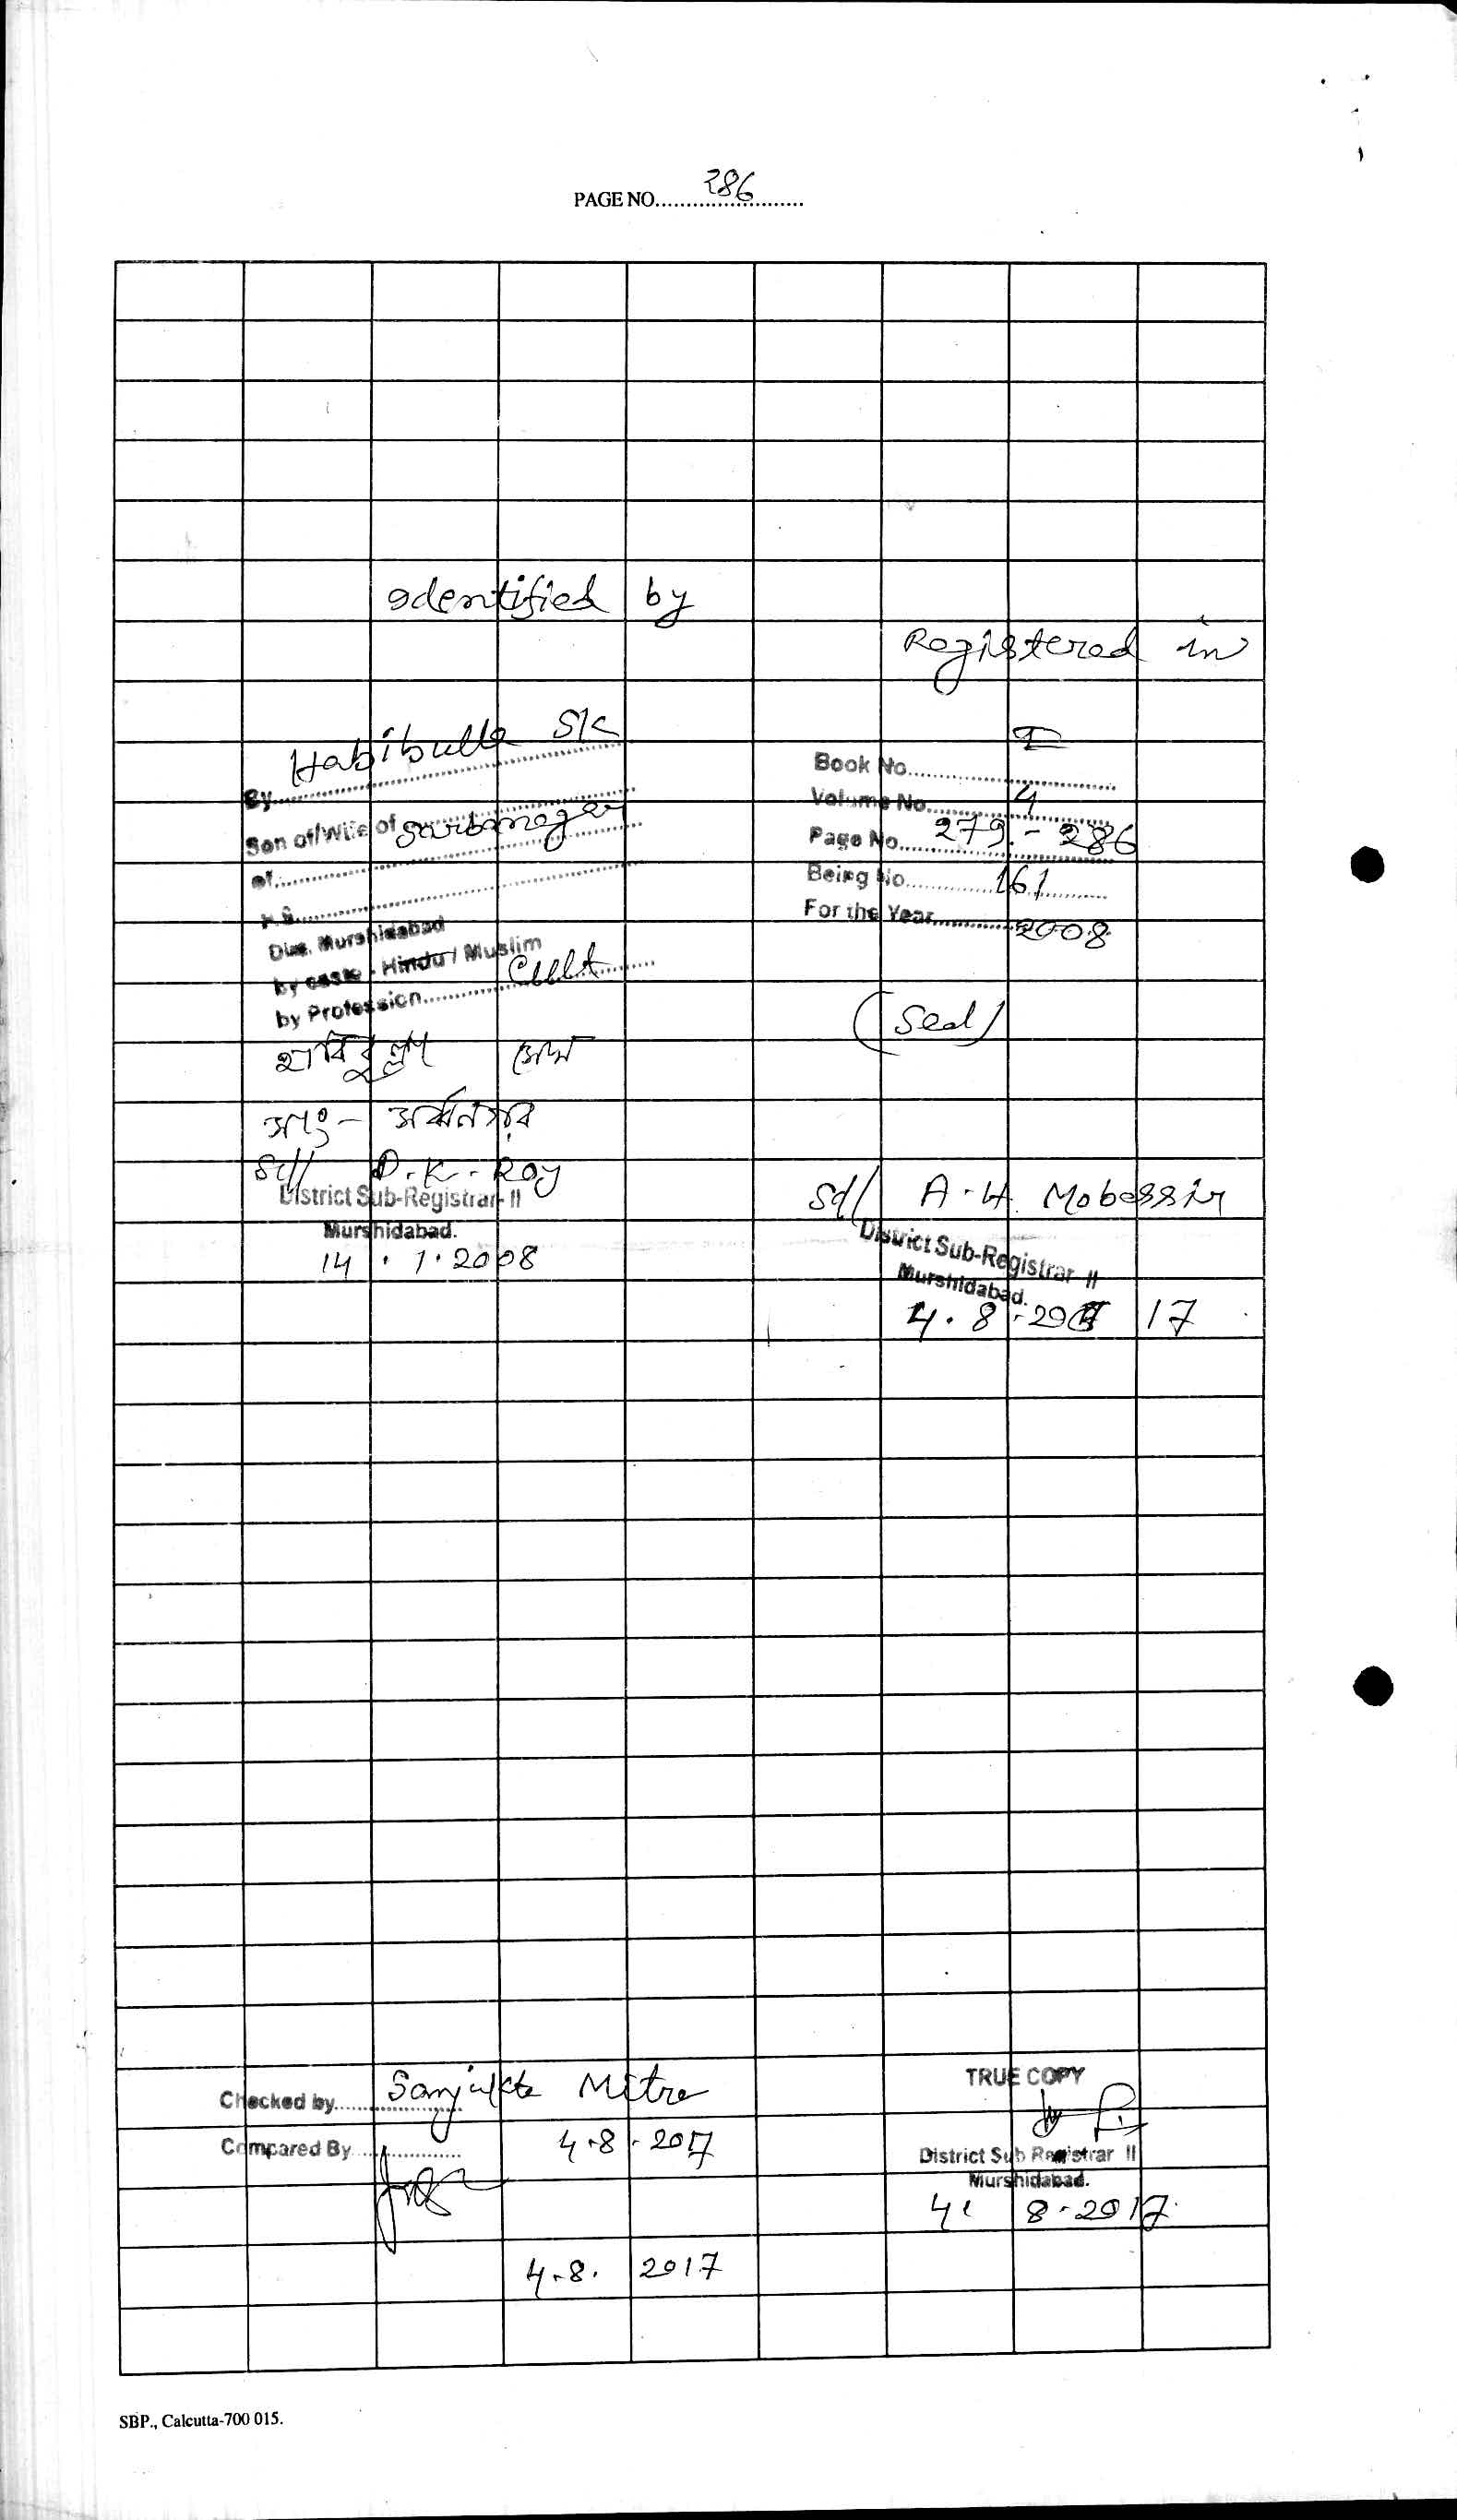 PAGE NO. 286
Identified by
Registered in
By Habibulla Sk
Son of/Wife of Sarbanagar
of
P.S.
Dist. Murshidabad
by caste - Hindu / Muslim
by Profession Cult
হাবিবুল্লা সেখ
সাং- সর্বানগর
Sd/ D.K. Roy
District Sub-Registrar- II
Murshidabad.
14.1.2008
Book No. I
Volume No. 4
Page No. 279 - 286
Being No. 161
For the Year 2008
(Seal)
Sd/ A.H. Mobassir
District Sub-Registrar II
Murshidabad.
4.8.2017
Checked by Sanjukta Mitra
4.8.2017
Compared By
4.8.2017
TRUE COPY
District Sub Registrar II
Murshidabad.
4.8.2017
SBP., Calcutta-700 015.